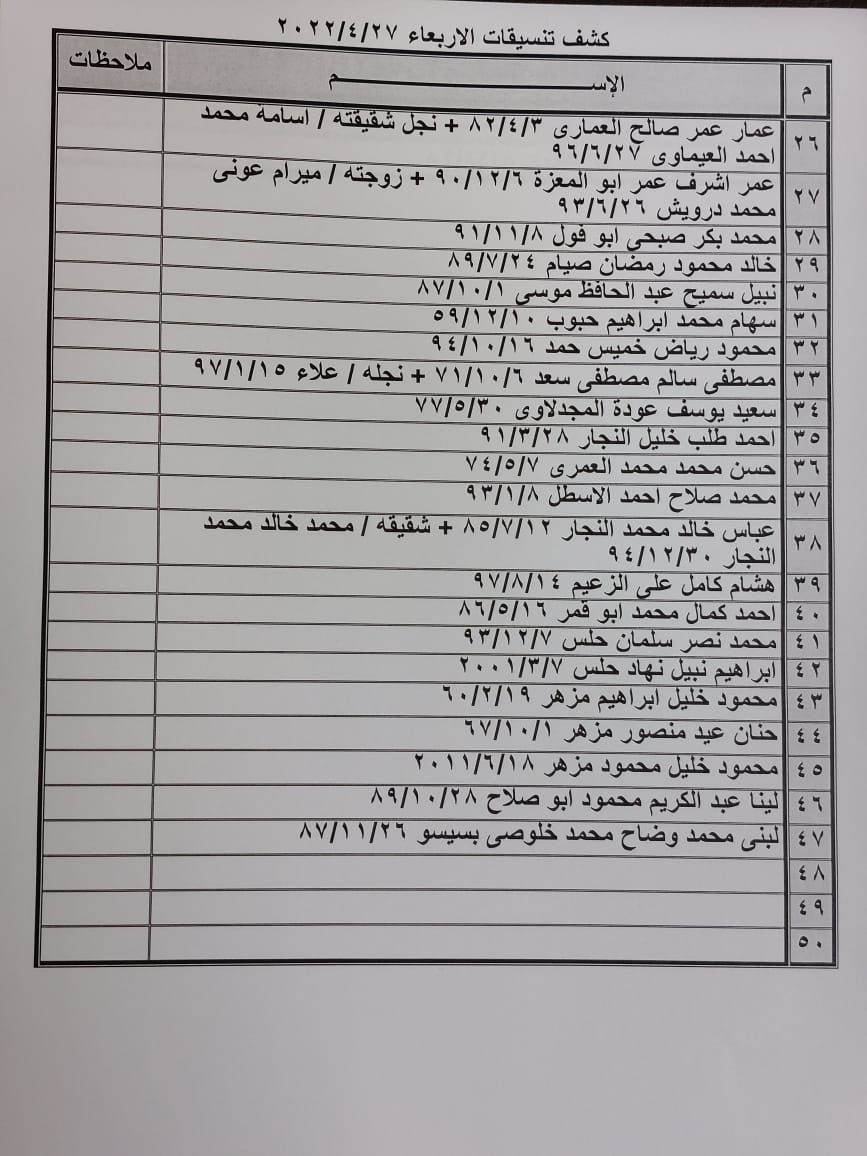 كشف تنسيقات الاربعاء ٢٠٢٢/٤/٢٧
م الإســـــــــم ملاحظات
٢٦ عمار عمر صالح العمارى ٨٢/٤/٣ + نجل شقيقته / اسامة محمد
احمد العيماوى ٩٦/٦/٢٧
٢٧ عمر اشرف عمر ابو المعزة ٩٠/١٢/٦ + زوجته / ميرام عونى
محمد درويش ٩٣/٦/٢٦
٢٨ محمد بكر صبحى ابو فول ٩١/١١/٨
٢٩ خالد محمود رمضان صيام ٨٩/٧/٢٤
٣٠ نبيل سميح عبد الحافظ موسى ٨٧/١٠/١
٣١ سهام محمد ابراهيم حبوب ٥٩/١٢/١٠
٣٢ محمود رياض خميس حمد ٩٤/١٠/١٦
٣٣ مصطفى سالم مصطفى سعد ٧١/١٠/٦ + نجله / علاء ٩٧/١/١٥
٣٤ سعيد يوسف عودة المجدلاوى ٧٧/٥/٣٠
٣٥ احمد طلب خليل النجار ٩١/٣/٢٨
٣٦ حسن محمد محمد العمرى ٧٤/٥/٧
٣٧ محمد صلاح احمد الاسطل ٩٣/١/٨
٣٨ عباس خالد محمد النجار ٨٥/٧/١٢ + شقيقه / محمد خالد محمد
النجار ٩٤/١٢/٣٠
٣٩ هشام كامل على الزعيم ٩٧/٨/١٤
٤٠ احمد كمال محمد ابو قمر ٨٦/٥/١٦
٤١ محمد نصر سلمان حلس ٩٣/١٢/٧
٤٢ ابراهيم نبيل نهاد حلس ٢٠٠١/٣/٧
٤٣ محمود خليل ابراهيم مزهر ٦٠/٢/١٩
٤٤ حنان عيد منصور مزهر ٦٧/١٠/١
٤٥ محمود خليل محمود مزهر ٢٠١١/٦/١٨
٤٦ لينا عبد الكريم محمود ابو صلاح ٨٩/١٠/٢٨
٤٧ لبنى محمد وضاح محمد خلوصى بسيسو ٨٧/١١/٢٦
٤٨
٤٩
٥٠